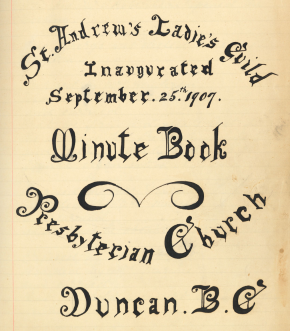 St. Andrew's Ladie's Guild
Inaugurated
September. 25.th 1907.
Minute Book
Presbyterian Church
Duncan. B. C.